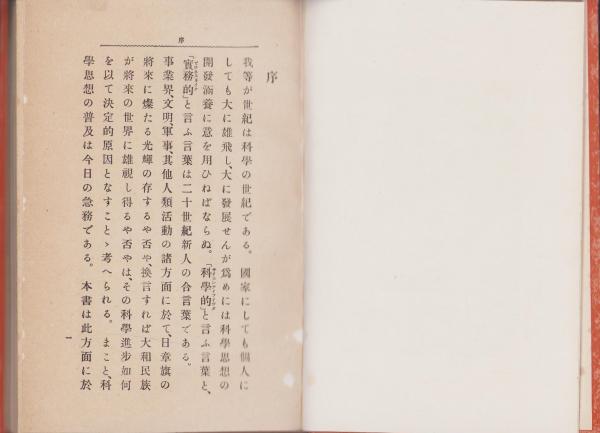 序
序
我等が世紀は科學の世紀である。國家にしても個人に
しても大に雄飛し、大に發展せんが爲めには科學思想の
開發涵養に意を用ひねばならぬ。「科學的」と言ふ言葉と、
「實務的」と言ふ言葉は二十世紀新人の合言葉である。
事業界、文明、軍事、其他人類活動の諸方面に於て、日章旗の
將來に燦たる光輝の存するや否や、換言すれば大和民族
が將來の世界に雄視し得るや否やは、その科學進步如何
を以て決定的原因となすことゝ考へられる。まこと、科
學思想の普及は今日の急務である。本書は此方面に於
一